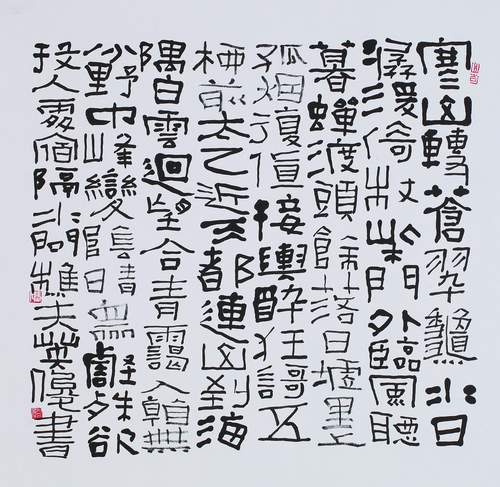 寒山轉蒼翠龝水日
潺湲倚杖柴門外臨風聽
暮蟬渡頭餘落日墟里上
孤烟復值接輿醉狂謌五
柳前太乙近天都連山到海
隅白雲迴望合青靄入看無
分野中峰變陰晴眾壑殊欲
投人處宿隔水問樵夫英書